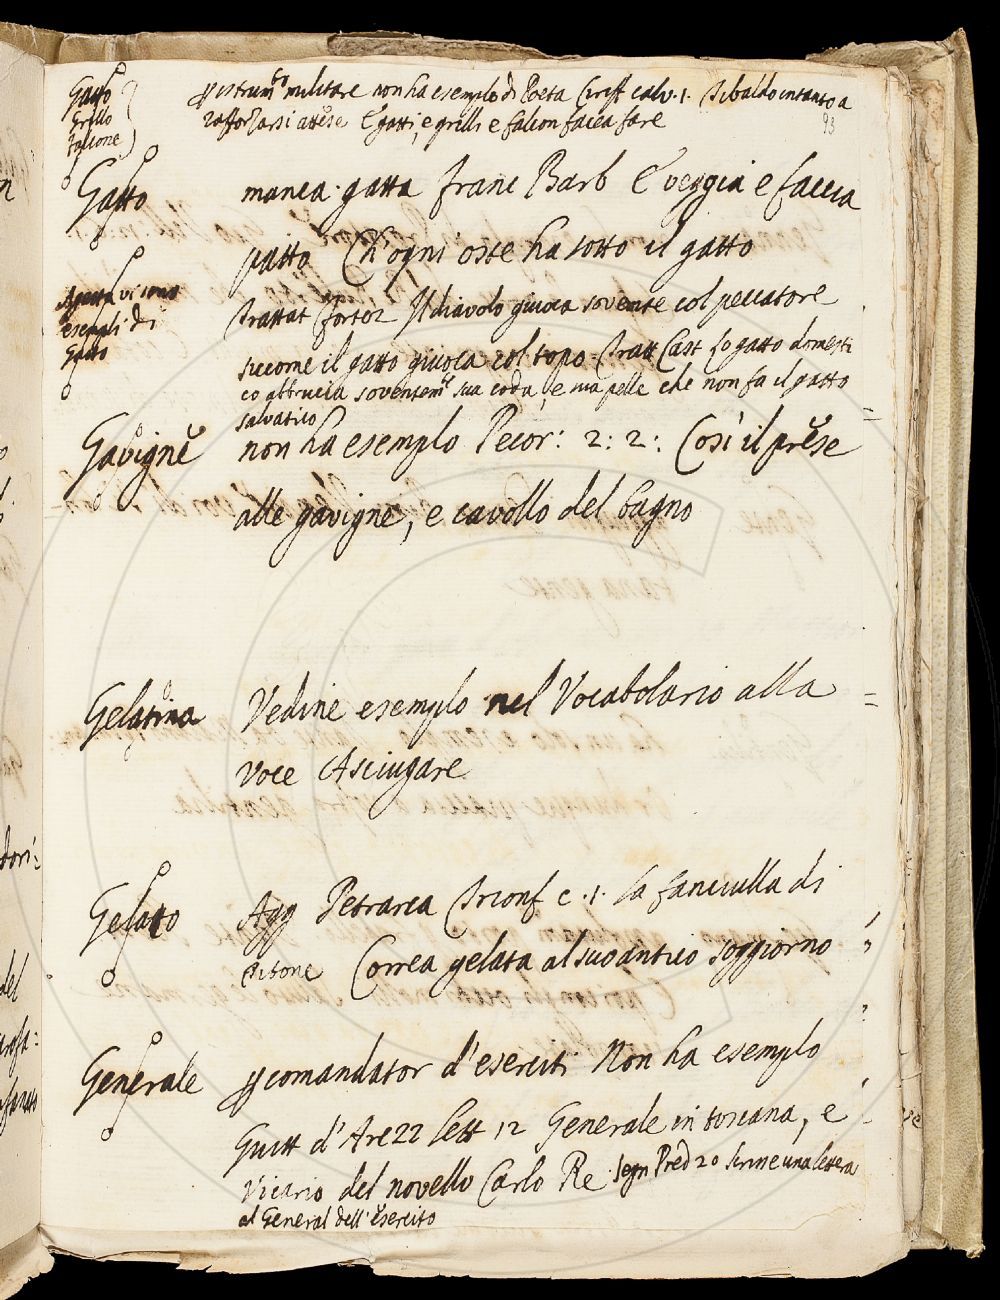 Gatto
Grillo
Falcone
p istrum.to militare non ha esemplo di Poeta Cireff calv. 1. Tibaldo intanto a
93
rafforzarsi attese E gatti, e grilli e falcon facea fare
Gatto manca gatta Franc Barb E veggia e faccia
patto Ch'ogni oste ha sotto il gatto
vi sono
esempli di
Gatto
Trattat Il diavolo giuoca sovente col peccatore
siccome il gatto giuoca col topo. Tratt Cast Lo gatto domesti
co abbrucia soventem.te sua coda, e sua pelle che non fa il gatto
salvatico
Gavigne non ha esemplo Pecor: 2: 2: Così il prese
alle gavigne, e cavollo del bagno
Gelatina Vedine esemplo nel Vocabolario alla
voce Asciugare
Gelato Agg Petrarca Trionf c. 1. La fanciulla di
Titone Correa gelata al suo antico soggiorno
Generale p comandator d'eserciti Non ha esemplo
Guitt d'Are 22 Lett 12 Generale in toscana, e
Vicario del novello Carlo Re. Segn Pred 20 scrive una lettera
al General dell'esercito